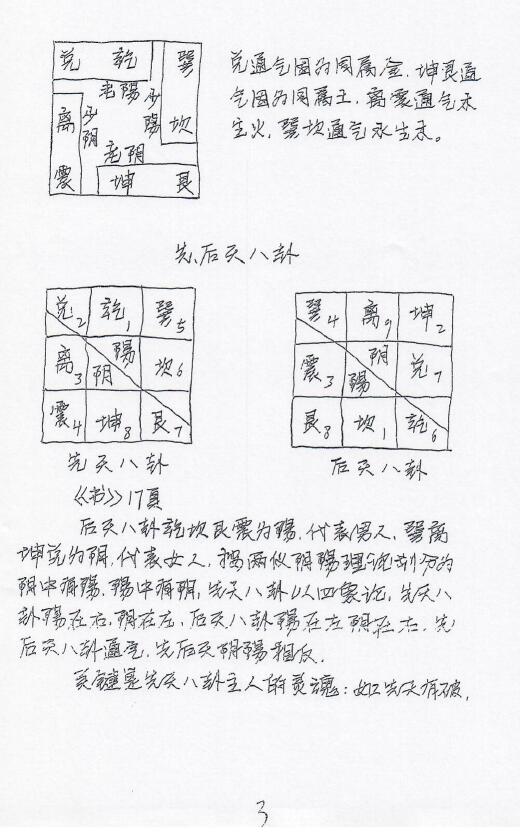 兑 乾 巽
老陽
离 少阴 少陽 坎
老阴
震 坤 艮
兑通气因为同属金,坤艮通
气因为同属土,离震通气木
生火,巽坎通气水生木。
先.后天八卦
兑2 乾1 巽5
离3 阴 陽 坎6
震4 坤8 艮7
先天八卦
巽4 离9 坤2
震3 陽 阴 兑7
艮8 坎1 乾6
后天八卦
《书》17頁
后天八卦乾坎艮震为陽.代表男人,巽离
坤兑为阴.代表女人.按两仪阴陽理论划分的
阴中有陽.陽中有阴,先天八卦以四象论,先天八
卦陽在右,阴在左,后天八卦陽在左阴在右.先
后天八卦通气.先后天阴陽相反.
关键是先天八卦主人的灵魂:如先天有破,
3